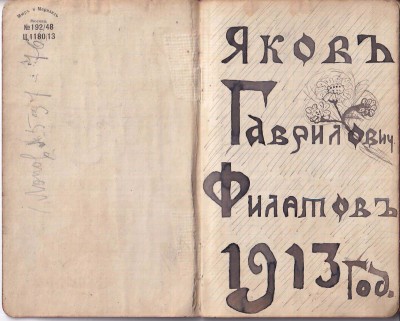 Мюръ и Мерилизъ
№192/48
Ц 1 р 80/13
Яковъ
Гаврилович
Филатовъ
1913 Год.